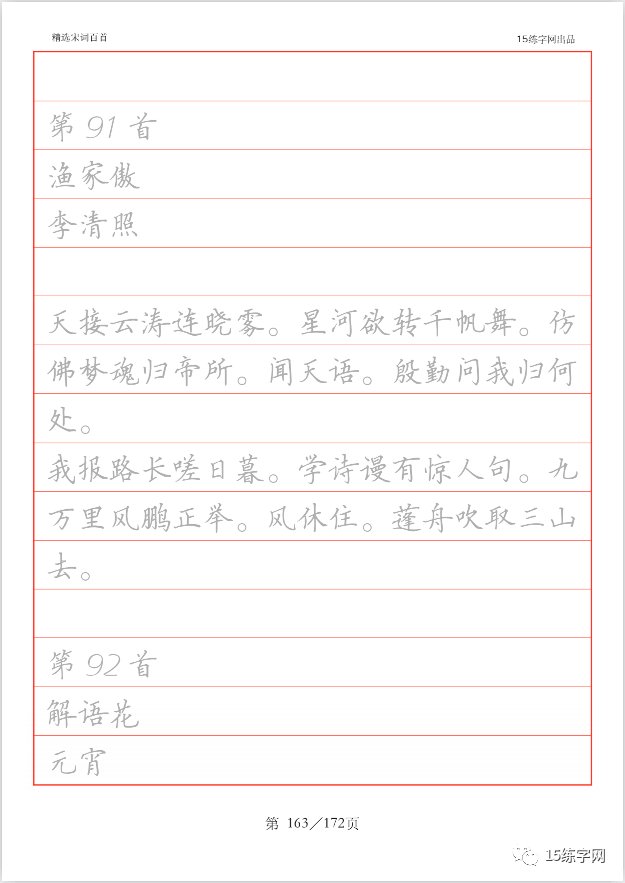 精选宋词百首
15练字网出品
第 91 首
渔家傲
李清照
天接云涛连晓雾。星河欲转千帆舞。仿
佛梦魂归帝所。闻天语。殷勤问我归何
处。
我报路长嗟日暮。学诗谩有惊人句。九
万里风鹏正举。风休住。蓬舟吹取三山
去。
第 92 首
解语花
元宵
第 163/172页
15练字网